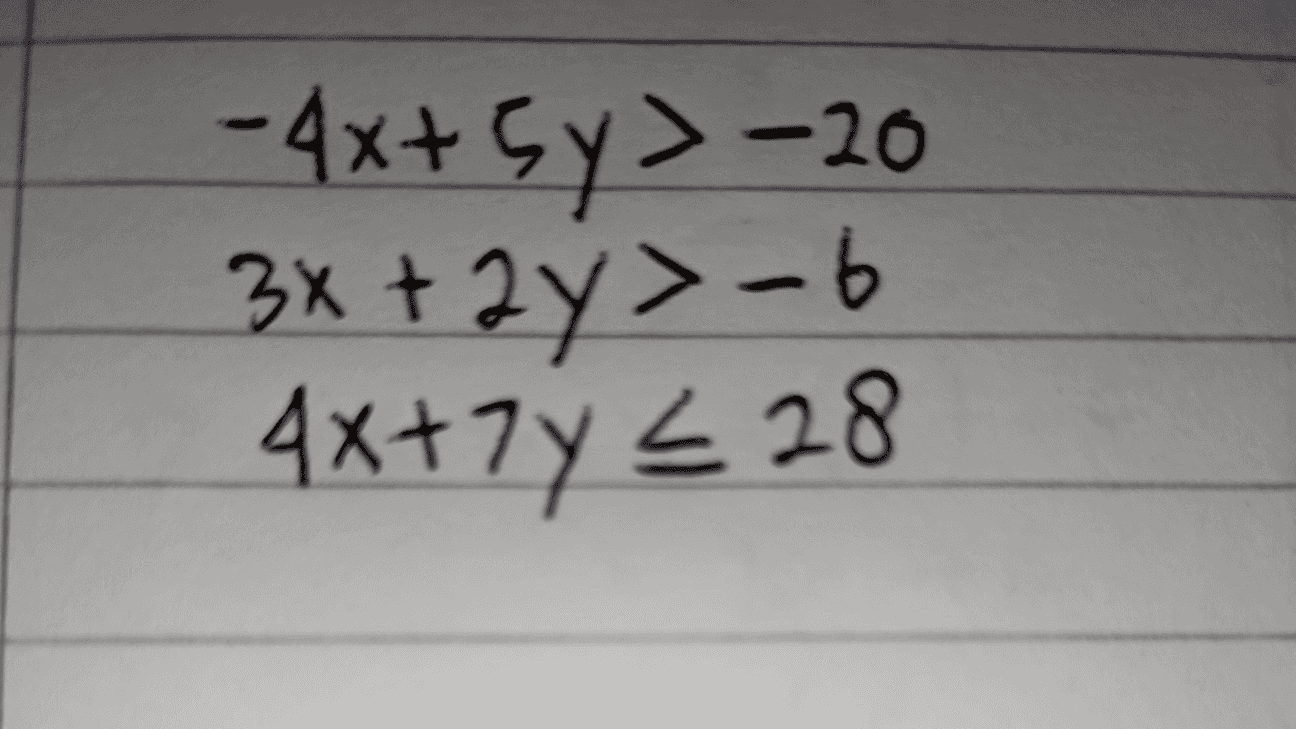 -4x + 5y > -20
3x + 2y > -6
4x + 7y ≤ 28